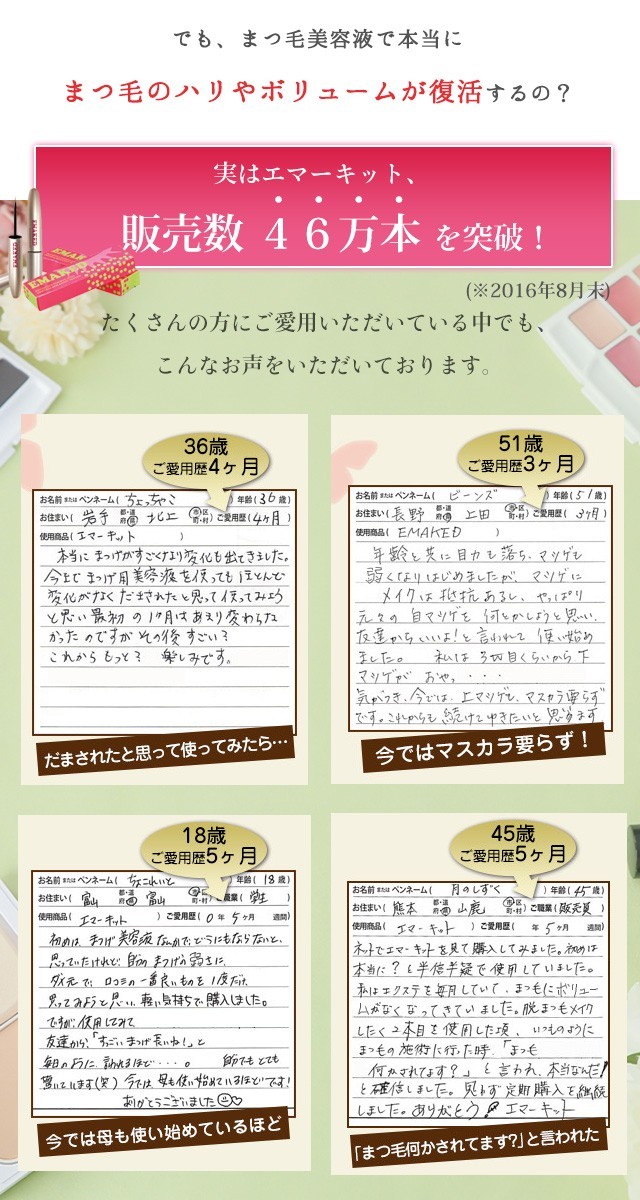 でも、まつ毛美容液で本当に
まつ毛のハリやボリュームが復活するの？
実はエマーキット、
販売数 ４６万本 を突破！
(※2016年8月末)
たくさんの方にご愛用いただいている中でも、
こんなお声をいただいております。
EMAKED
36歳
ご愛用歴4ヶ月
お名前 または ペンネーム( ちょっちゃこ ) 年齢(36歳)
お住まい( 岩手 都・道 府・県 北上 市・区 町・村 ) ご愛用歴( 4ヶ月 )
使用商品( エマーキット )
本当にまつげがすごくなり変化も出てきました。
今までまつげ用美容液を使ってもほとんど
変化がなくだまされたと思って使ってみよう
と思い最初の1ヶ月はあまり変わらな
かったのですがその後すごい？
これからもっと？ 楽しみです。
だまされたと思って使ってみたら…
51歳
ご愛用歴3ヶ月
お名前 または ペンネーム( ビーンズ ) 年齢(51歳)
お住まい( 長野 都・道 府・県 上田 市・区 町・村 ) ご愛用歴( 3ヶ月 )
使用商品( EMAKED )
年齢と共に目力も落ち、マツゲも
弱くなりはじめましたが、マツゲに
メイクは抵抗あるし、やっぱり
元々の自マツゲを何とかしようと思い、
友達からいいよ!と言われて使い始め
ました。 私は3切目くらいから下
マツゲが おやっ・・・
気がつき、今では、上マツゲも、マスカラ要らず
です。これからも続けてゆきたいと思います
今ではマスカラ要らず！
18歳
ご愛用歴5ヶ月
お名前 または ペンネーム( ちょこれいと ) 年齢(18歳)
お住まい( 富山 都・道 府・県 富山 市・区 町・村 ) ご職業( 学生 )
使用商品( エマーキット ) ご愛用歴( 0年 5ヶ月 週間)
初めは、まつげ美容液なんかで、どうにもならないと、
思っていたけれど、自分のまつげの弱さに、
ダメ元で、口コミの一番良いものを1度だけ、
買ってみようと思い、軽い気持ちで購入しました。
ですが、使用してみて
友達から、「すごいまつげ長いね!」と
毎日のように、言われるほど・・・。 自分でもとても
驚いています(笑) 今では、母も使い始めているほどです!
ありがとうございました
今では母も使い始めているほど
45歳
ご愛用歴5ヶ月
お名前 または ペンネーム( 月のしずく ) 年齢(45歳)
お住まい( 熊本 都・道 府・県 山鹿 市・区 町・村 ) ご職業( 販売員 )
使用商品( エマーキット ) ご愛用歴( 年 5ヶ月 週間)
ネットでエマーキットを見て購入してみました。初めは
本当に？と半信半疑で使用していました。
私はエクステを毎月していて、まつ毛にボリュー
ムがなくなってきていました。脱まつ毛メイク
したく2本目を使用した頃、いつものように
まつ毛の施術に行った時、「まつ毛
何かされてます？」と言われ、本当なんだ!
と確信しました。思わず定期購入を継続
しました。ありがとう エマーキット
「まつ毛何かされてます?」と言われた